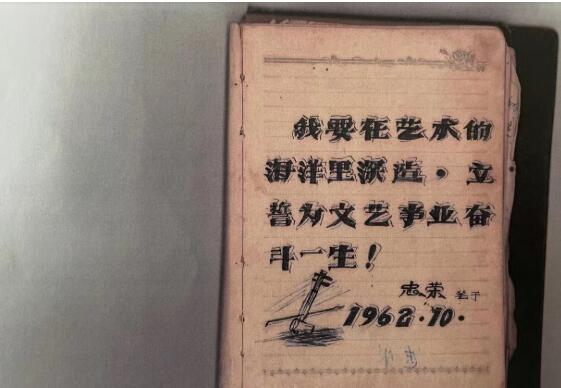 我要在艺术的
海洋里深造·立
誓为文艺事业奋
斗一生！
忠荣
1962·10·